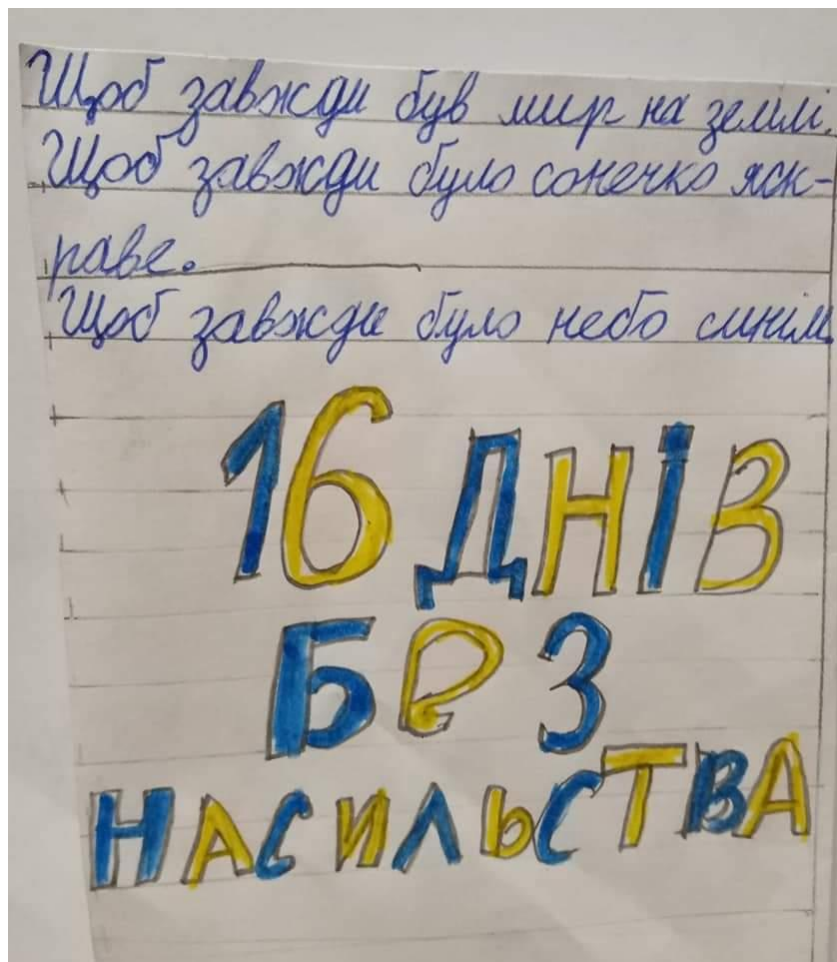 Щоб завжди був мир на землі.
Щоб завжди було сонечко яск-
раве.
Щоб завжди було небо синім
16 ДНІВ
БЕЗ
НАСИЛЬСТВА